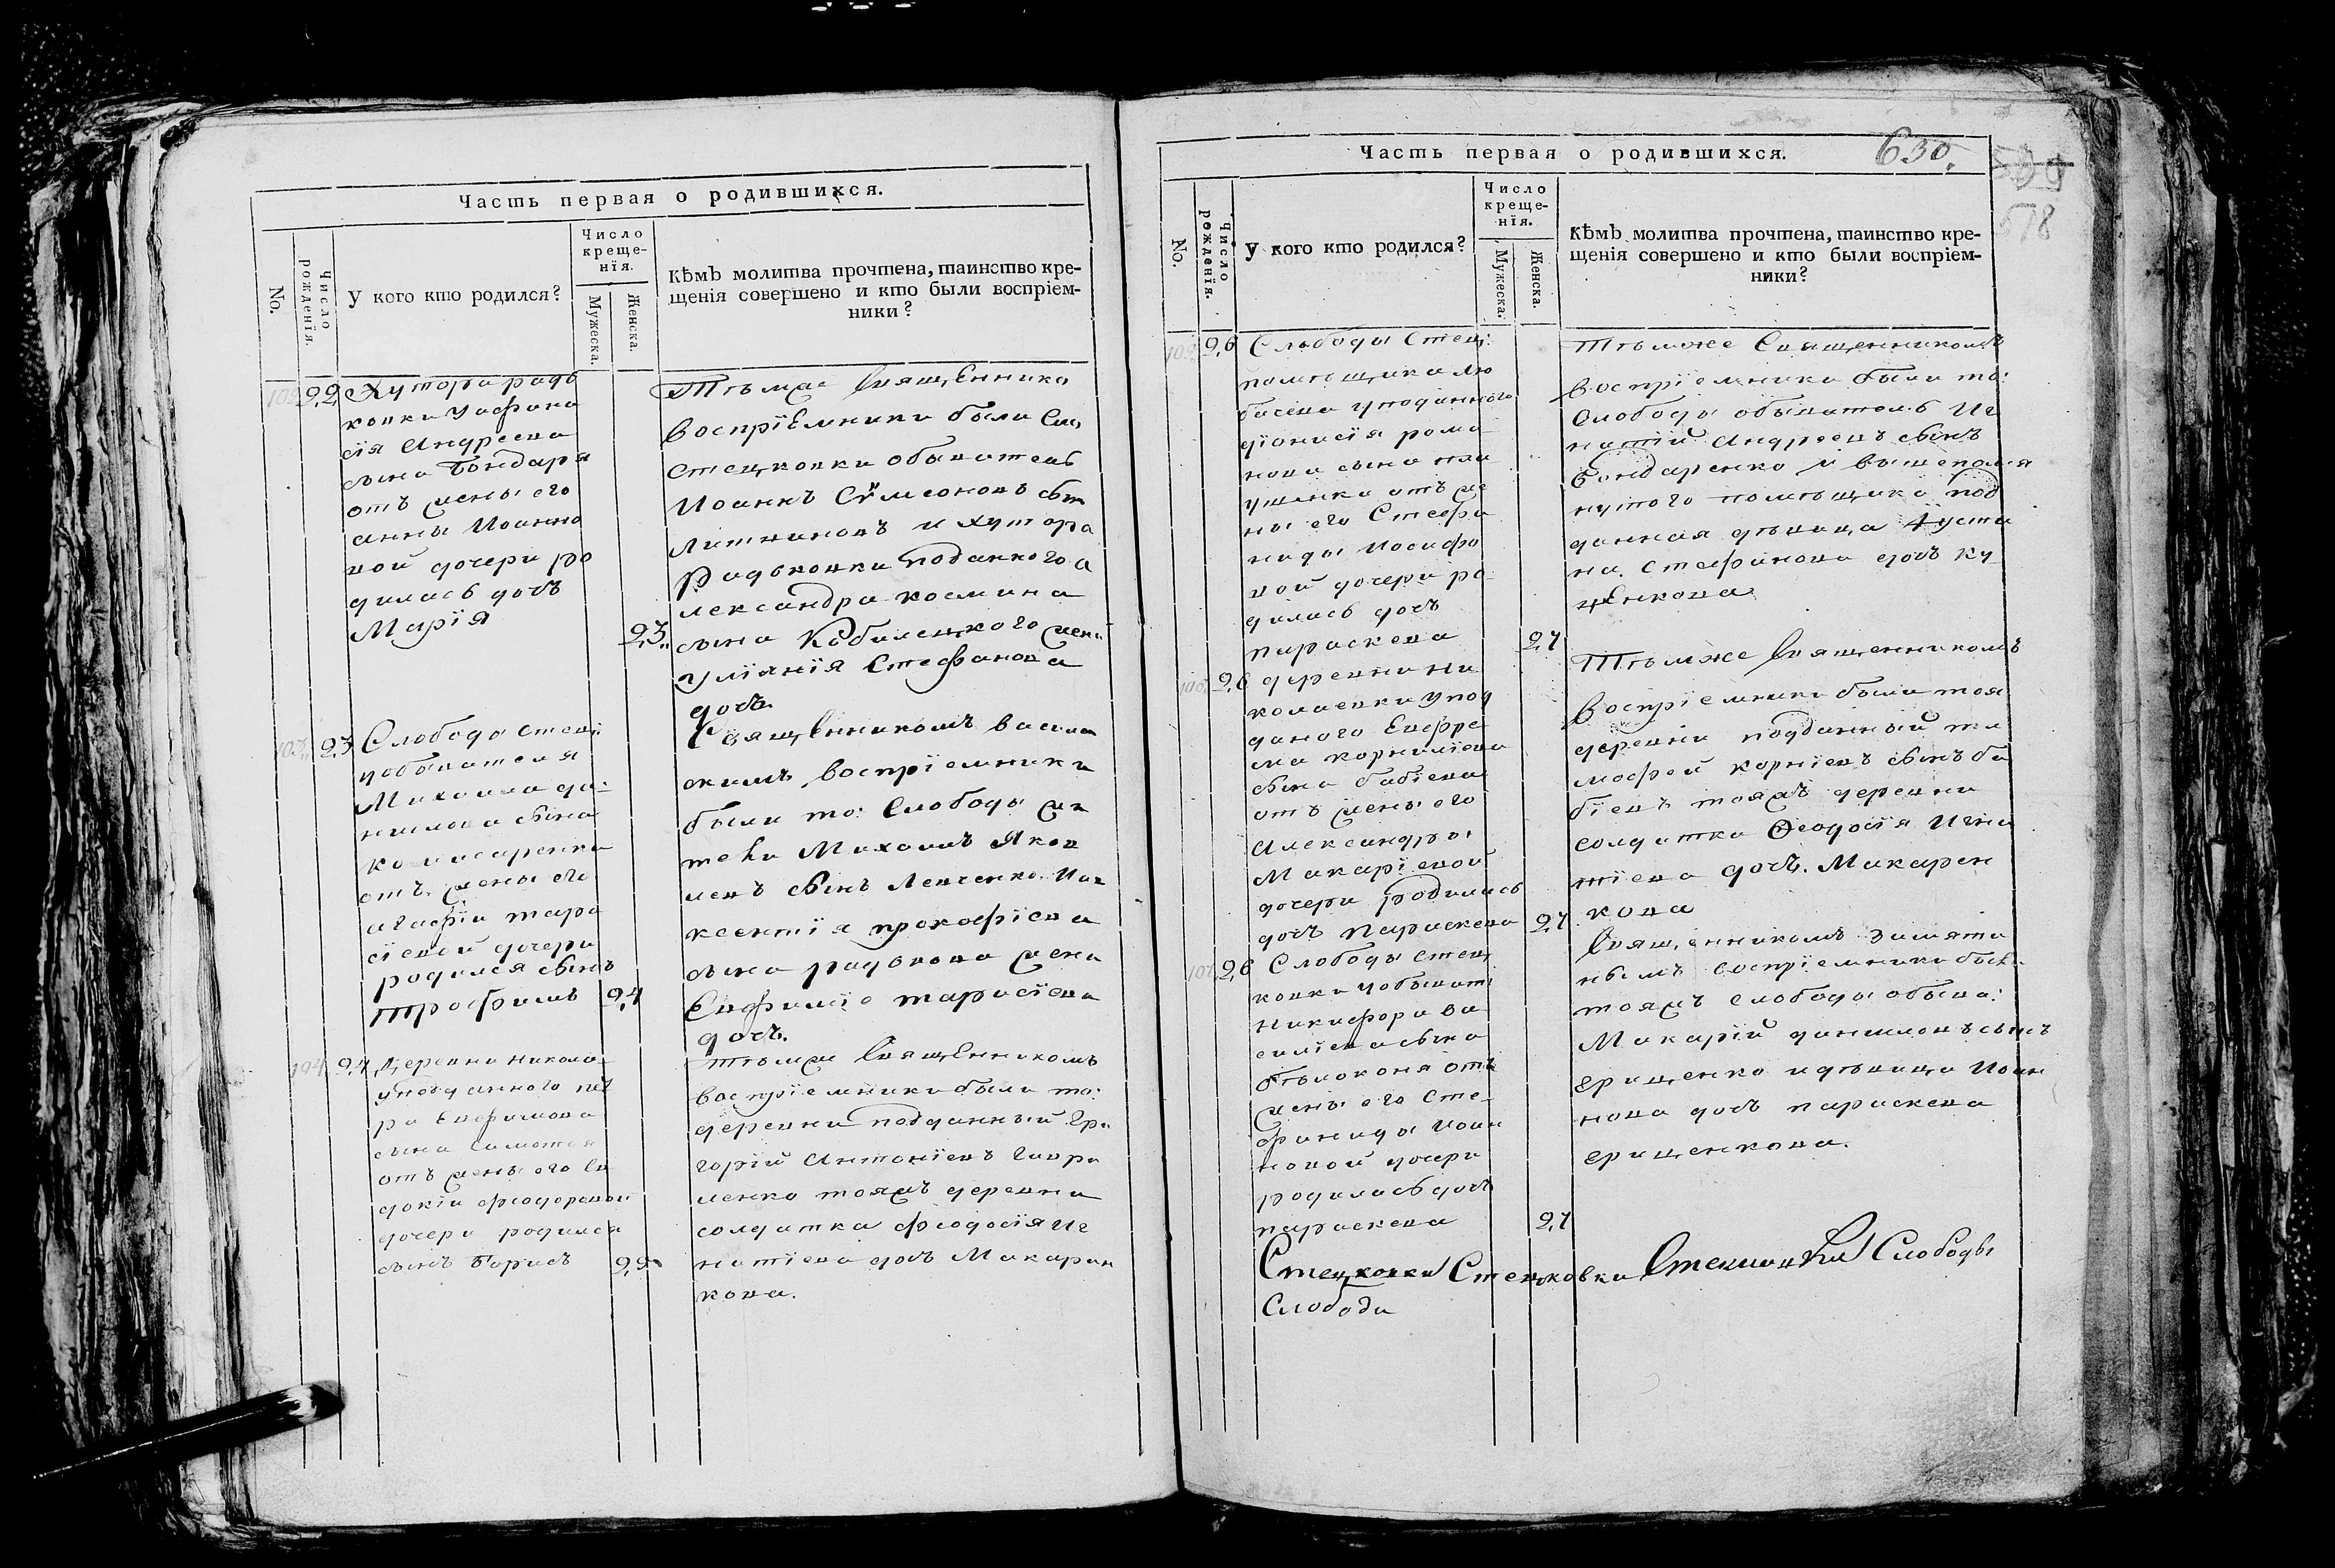 Часть первая о родившихся.
No.
Число рожденїя.
У кого кто родился?
Число
креще-
нїя.
Мужеска.
Женска.
Кѣмъ молитва прочтена, таинство кре-
щенія совершено и кто были воспріем-
ники?
102 22 Хутора радь
ковки у афана
сія Андреева
сына Бондаря
отъ жены его
анны Иоанно
вой дочери ро
дилась дочь
Марїя
23
Тѣмже Священнико
воспрїемники были Сло
стецковки обыватель
Иоаннъ Сѵмеоновъ сын
Литвиновъ и хутора
Радьковки подданного а
лександра космина
сына Кобилецкого жена
улїянїя Стефанова
дочь.
103 23 Слободы стец:
у обывателя
Михаила да:
ниилова сына
комисаренка
отъ жены его
агафїи тара
сїевой дочери
родился сынъ
Трофимъ 24
Священникомъ васили
скимъ воспрїемники
были то: слободы жи
тели Михаилъ Яков
левъ сынъ Левченко. и
ксентїя прокофїева
сына радькова жена
Евфимїя тарасїева
дочь.
104 24 Деревни никола
у подданного пет
ра Евфимова
сына
отъ жены его Ев
докїи феодоровой
дочери родился
сынъ Борисъ 25
тѣмже Священникомъ
воспрїемники были то:
деревни подданный Гри
горїй Антонїевъ Гаври
ленко тояжъ деревни
солдатка феодосїя Иг
натїева дочь Макарен
кова.
Часть первая о родившихся.
630.
599
578
No.
Число рожденїя.
У кого кто родился?
Число
креще-
нїя.
Мужеска.
Женска.
Кѣмъ молитва прочтена, таинство кре-
щенія совершено и кто были воспріем-
ники?
105 26 Слободы Стец:
помѣщика лю
басева у поданного
дїонисїя рома
нова сына
отъ же
ны его Стефа
ниды Иосифо
вой дочери ро
дилась дочь
параскева 27
Тѣмже Священникомъ
воспрїемники были то:
Слободы обыватель Иг
натїй Андреевъ сынъ
Бондаренко и вышепомя
нутого помѣщика под
данная дѣвица Іуста
на. Стефанова дочь Ку
ценкова
106 26 деревни ни
колаевки у под
даного Евфре
ма корнилїева
сына бабїева
отъ жены его
Александры
Макарїевой
дочери родилась
дочь Параскева 27
Тѣмже Священникомъ
воспрїемники были тоя
деревни подданный ти
мофей корнїевъ сынъ ба
бїевъ тояжъ деревни
солдатка Ѳеодосїя Игна
тїева дочь. Макарен
кова
107 26 Слободы стец
ковки у обыват:
Никифора ва
силїева сына
бѣлоконя отъ
жены его Сте
фаниды Иоан
новой дочери
родилась дочь
параскева 27
Священникомъ Замяти
нымъ воспрїемники были
тояжъ слободы обыва:
Макарїй даниловъ сынъ
грищенко и дѣвица Иоан
нова дочь параскева
грищенкова.
Стецковки Стецковки Слободы
Слободы